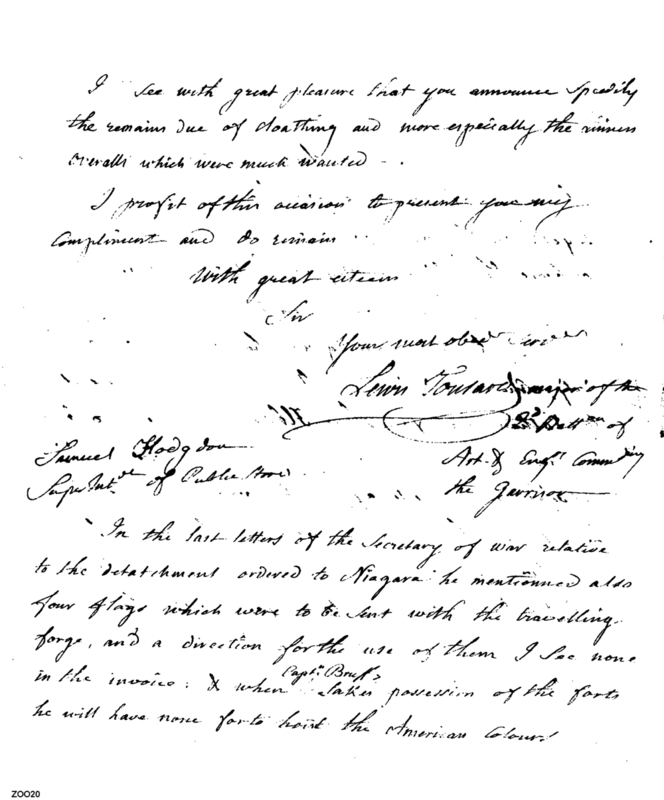 I see with great pleasure that you announce Speedily
the remains due of cloathing and more especially the
overalls which were much wanted -.
I profit of this occasion to present you my
Compliment and do remain
With great esteem
Sir
Your most obed
Lewis Tousard major of the
2d Batt.on of
Art. & Eng.s Command.g
the Garrison
Samuel Hodgdon
SuperInt.dt of Public Stores
In the last letters of the Secretary of war relative
to the detatchment ordered to Niagara he mentionned also
four flags which were to be sent with the travelling
forge, and a direction for the use of them I See none
in the invoice: & when Capt.n Bruff takes possession of the forts
he will have none for to hoist the American Colours